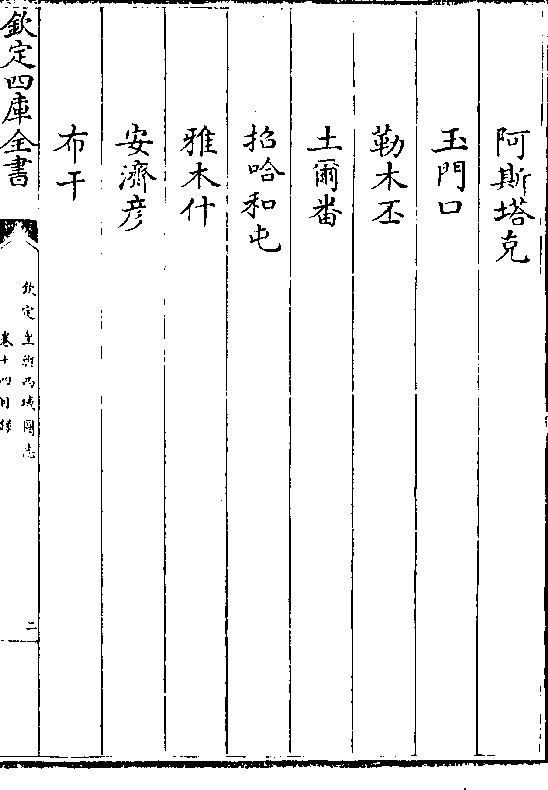 阿斯塔克
玉門口
勒木丕
土爾番
招哈和屯
雅木什
安濟彦
布干
欽定四庫全書
欽定皇輿西域圖志
卷十四目錄
二